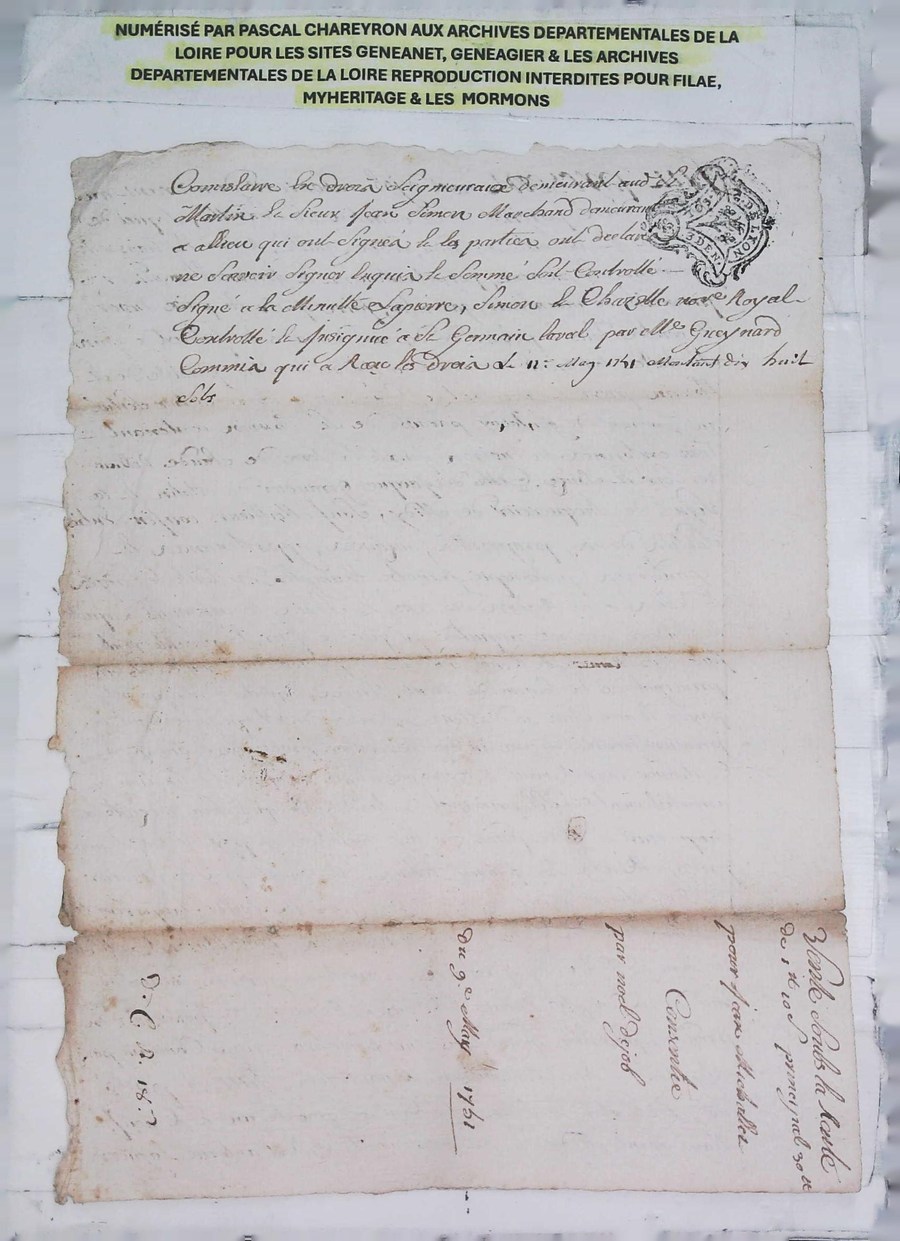 NUMÉRISÉ PAR PASCAL CHAREYRON AUX ARCHIVES DEPARTEMENTALES DE LA
LOIRE POUR LES SITES GENEANET, GENEAGIER & LES ARCHIVES
DEPARTEMENTALES DE LA LOIRE REPRODUCTION INTERDITES POUR FILAE,
MYHERITAGE & LES MORMONS
Commissaire En droits Seigneuriaux demeurant aud St
Martin Et Sieur Jean Simon Marchand demeurant
a allieu qui ont Signés Et les parties ont declaré
ne Scavoir Signer Enquis Et Sommé Soit Controllé.
Signé a la Minutte Lapierre, Simon Et Chazelle nore Royal
Controllé Et Insignué a St Germain laval par Me Gueynard
Commis qui a Receu les droits Le 11e May 1751 Montant dix huit
Sols
G. DE LYON
DEN.
Vente Soubs la Rente
de 1 tt 10 S principal 30 tt
pour jean Michallet
Consentie
par noel Dejob
Du 9e May 1751